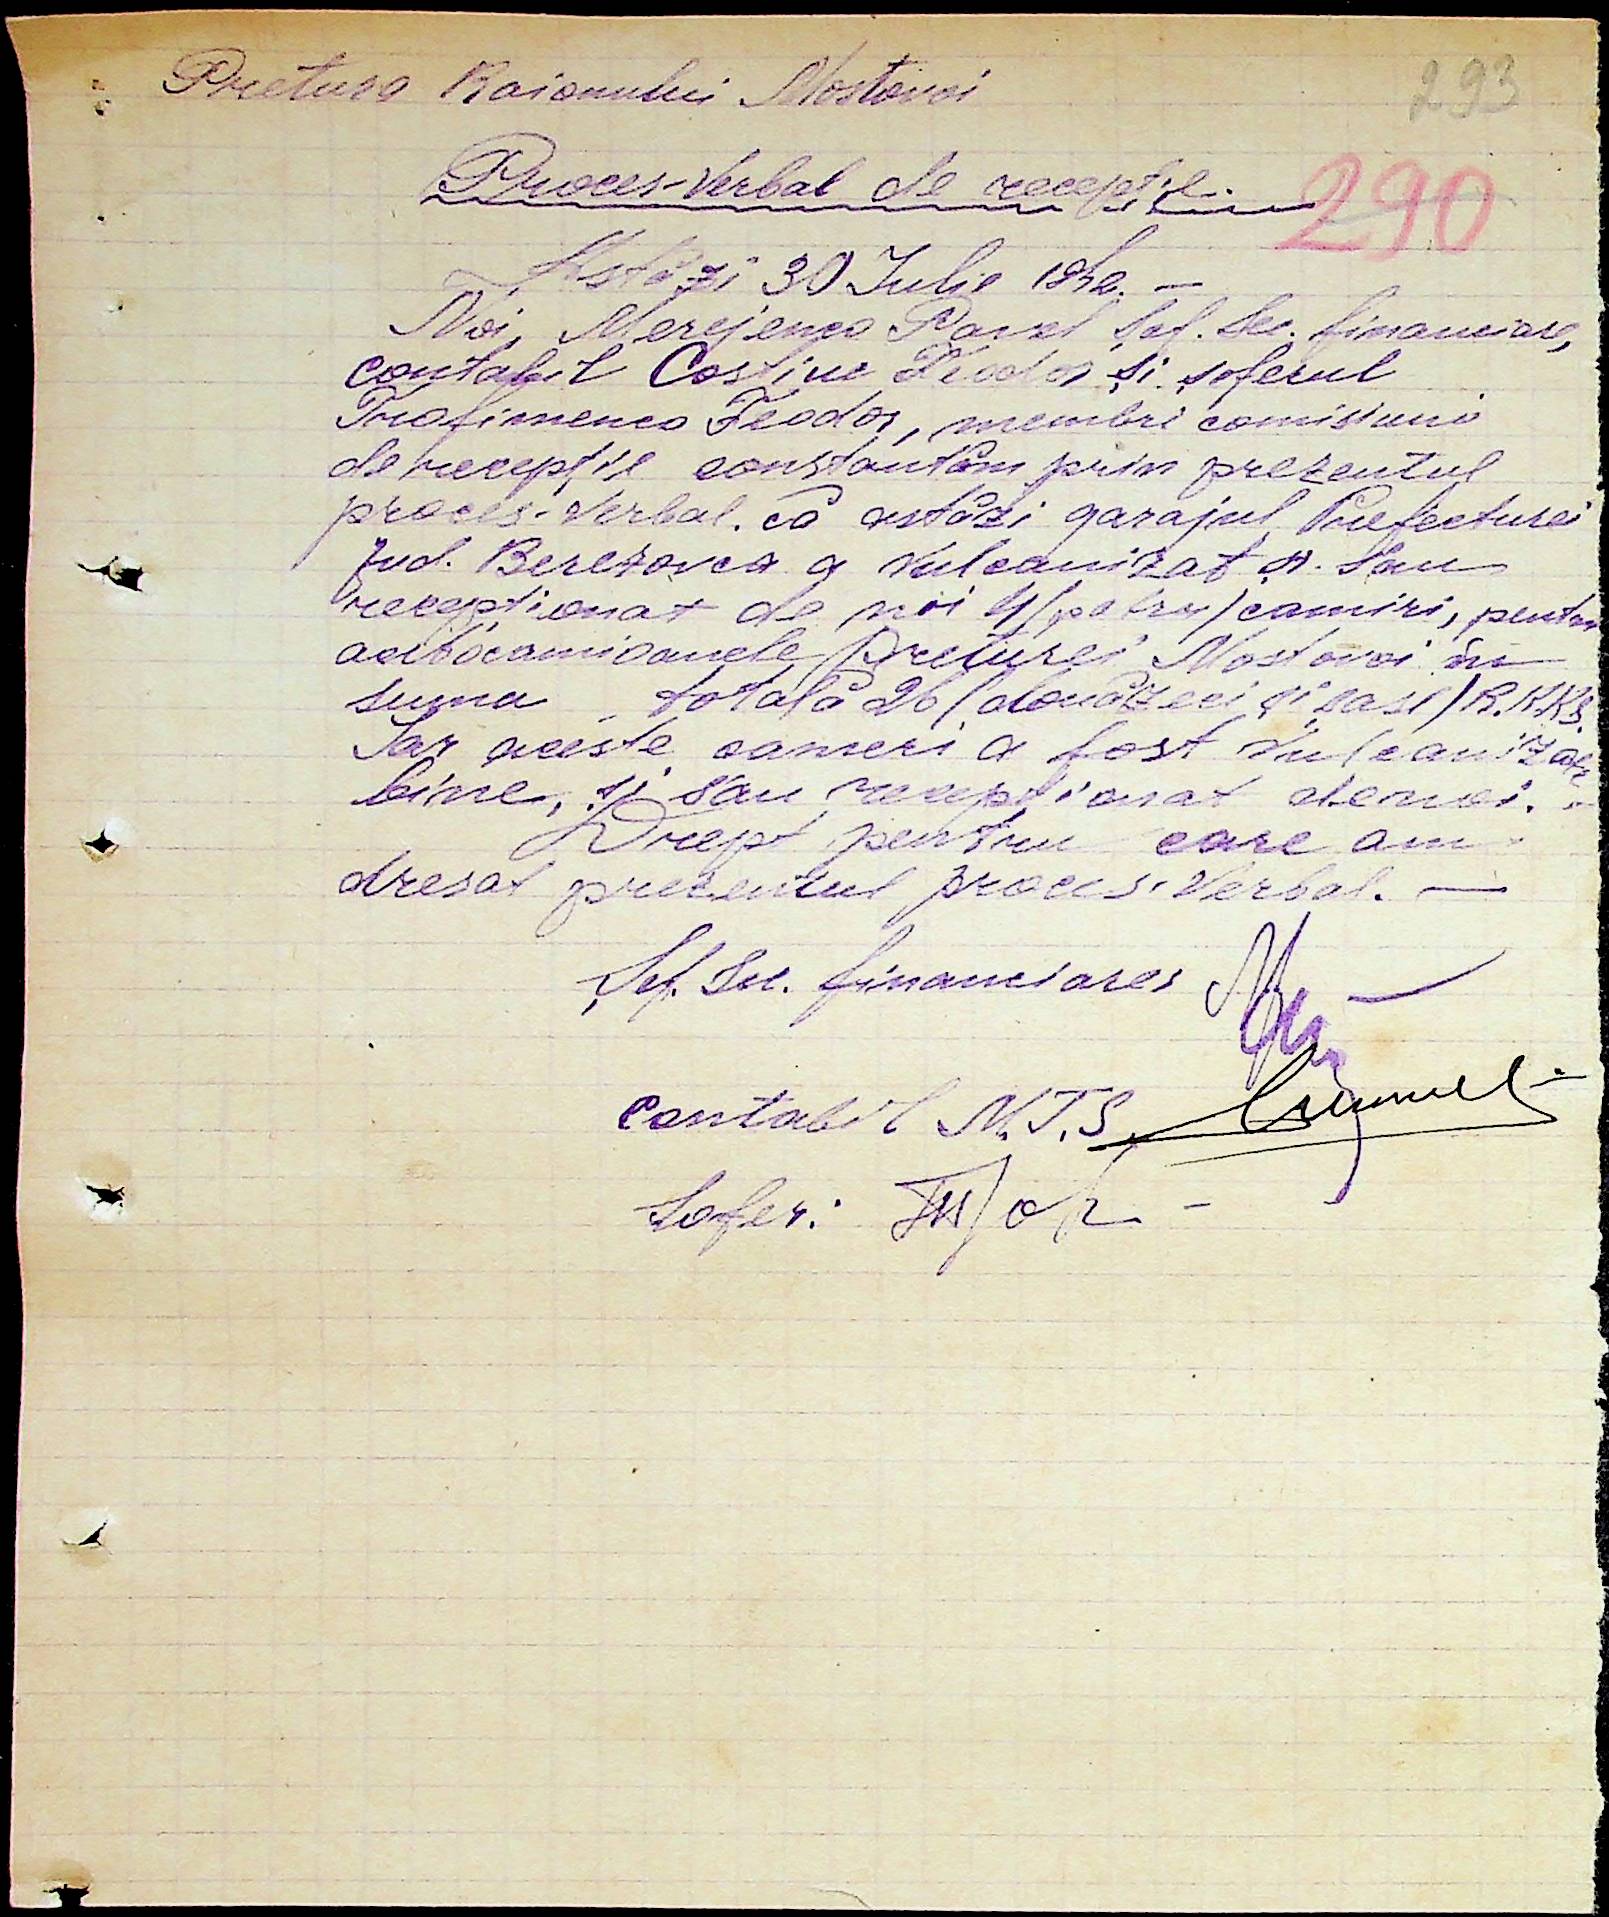 Pretura Raionului Mostovoi
293
Proces-Verbal de recepție.
290
Astăzi 30 Iulie 1942. —
Noi, Merejenco Pavel Șef. Sec. financiare,
contabil Costiuc Feodor și șoferul
Trofimenco Feodor, membri comisiuni
de recepție constantăm prin prezentul
proces-Verbal. că astăzi garajul Prefecturei
Jud. Berezovca a vulcanizat și sau
recepționat de noi 4/patru/camiri, pentru
autocamioanele Preturei Mostovoi în
suma totală 26/douăzeci și șase/R.K.K.S.
Iar aceste cameri a fost vulcanizate
bine, și sau recepționat denoi. —
Drept pentru care am
dresat prezentul proces-Verbal. —
Șef. Sec. financiarei
contabil M.T.S.
Șofer: